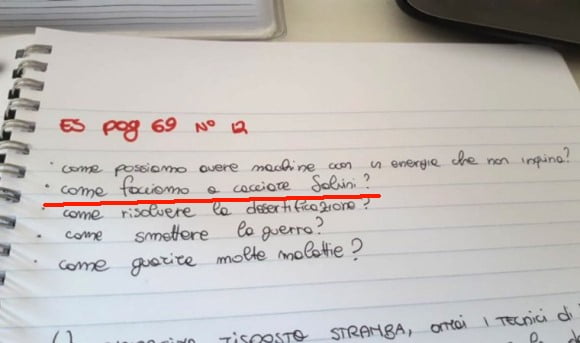 ES pag 69 N° 12
· come possiamo avere macchine con un energia che non inquina?
· come facciamo a cacciare Salvini?
· come risolvere la desertificazione?
· come smettere la guerra?
· come guarire molte malattie?
RISPOSTA STRAMBA, ormai i tecnici di